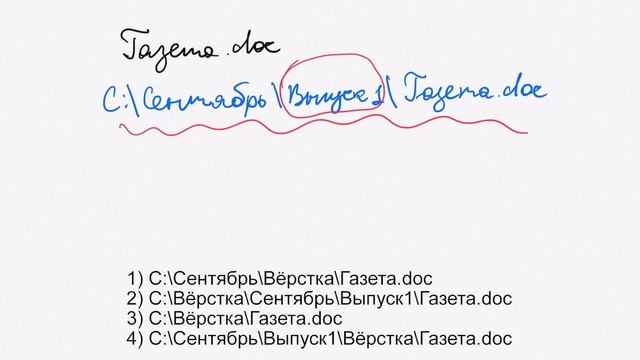 Газета.doc
C:\Сентябрь\Выпуск1\Газета.doc
1) C:\Сентябрь\Вёрстка\Газета.doc
2) C:\Вёрстка\Сентябрь\Выпуск1\Газета.doc
3) C:\Вёрстка\Газета.doc
4) C:\Сентябрь\Выпуск1\Вёрстка\Газета.doc